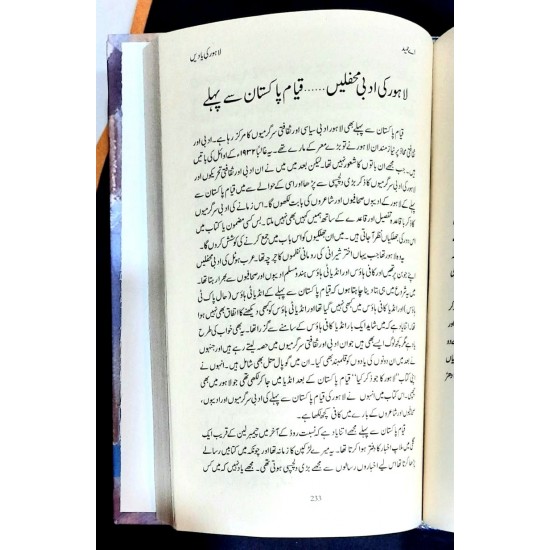 لاہور کی یادیں
اے حمید
لاہور کی ادبی محفلیں...... قیام پاکستان سے پہلے
قیام پاکستان سے پہلے بھی لاہور ادبی سیاسی اور ثقافتی سرگرمیوں کا مرکز رہا ہے۔ ادبی اور
محاذ پر نیاز مندان لاہور نے تو بڑے معرکے مارے تھے۔ یہ غالباً ۱۹۳۲ء کے اوائل کی باتیں
ہیں۔ جب مجھے ان باتوں کا شعور نہیں تھا۔ لیکن بعد میں میں نے ان ادبی اور ثقافتی تحریکوں اور
لاہور کی ادبی سرگرمیوں کا ذکر بڑی دلچسپی سے پڑھا اور اسی کے حوالے سے میں قیام پاکستان سے
پہلے کے لاہور کے ادیبوں صحافیوں اور شاعروں کی بابت لکھوں گا۔ اس زمانے کی ادبی سرگرمیوں
کا باقاعدہ تفصیل اور قاعدے کے ساتھ ہمیں کہیں بھی نہیں ملتا۔ بس کسی مضمون یا کتاب میں
اس دور کی جھلکیاں نظر آ جاتی ہیں۔ میں ان جھلکیوں کو اس باب میں جمع کرنے کی کوشش کروں گا۔
یہ وہ لاہور تھا جب یہاں اختر شیرانی کی رومانی نظموں کا چرچہ تھا۔ عرب ہوٹل کی ادبی محفلیں
اپنے جوبن پر تھیں اور کافی ہاؤس اور انڈیا ٹی ہاؤس ہندو مسلم ادیبوں اور صحافیوں سے بھرا رہتا تھا۔
میں یہ شروع میں ہی بتا دینا چاہتا ہوں کہ قیام پاکستان سے پہلے کے انڈیا ٹی ہاؤس (حال پاک ٹی
ہاؤس) اور کافی ہاؤس میں کبھی نہیں گیا تھا۔ اور انڈیا ٹی ہاؤس کو تو کبھی دیکھنے کا اتفاق بھی نہیں ہوا
تھا۔ اتنا یاد ہے کہ میں شاید ایک بار انڈیا کافی ہاؤس کے سامنے سے گزرا تھا۔ یہ بھی خواب کی طرح
یاد ہے۔ کچھ لوگ ایسے بھی ہیں جو ان ادبی اور ثقافتی سرگرمیوں میں حصہ لیتے رہے ہیں اور جنہوں
نے بعد میں ان دنوں کی یادوں کو قلمبند بھی کیا۔ ان میں گوپال متل بھی شامل ہیں۔ انہوں نے
اپنی کتاب ”لاہور کا جو ذکر کیا“ قیام پاکستان کے بعد انڈیا میں جا کر لکھی تھی جو لاہور میں بھی
چھپی۔ اس کتاب میں انہوں نے لاہور کی قیام پاکستان سے پہلے کی ادبی سرگرمیوں اور ادیبوں،
صحافیوں اور شاعروں کے بارے میں کافی کچھ لکھا ہے۔
قیام پاکستان سے پہلے مجھے اتنا یاد ہے کہ نسبت روڈ کے آخر میں چیمبرلین کے قریب ایک
گلی میں ملاپ اخبار کا دفتر ہوا کرتا تھا۔ یہ میرے لڑکپن کا زمانہ تھا اور چونکہ میں کتابیں رسالے
پڑھا کرتا تھا اس لیے اخباروں رسالوں سے مجھے بڑی دلچسپی ہوتی تھی۔ مجھے یاد نہیں کہ میں کس
233